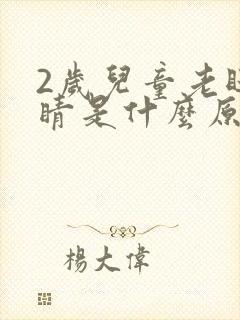 2歲兒童老
睛是什麼原
楊大偉